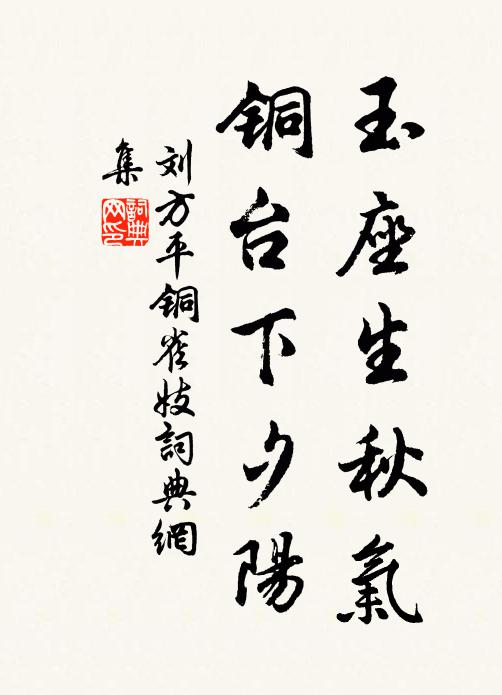 玉座生秋氣
铜台下夕陽
刘方平铜雀妓詞典網
集
詞典網印